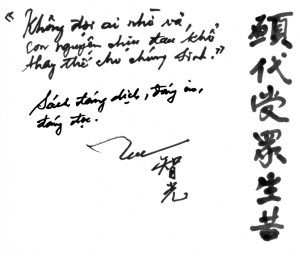 « Không đợi ai nhờ vả,
con nguyện chịu đau khổ
thay thế cho chúng sinh. »
Sách đáng dịch, đáng in,
đáng đọc.
智光
願代受眾生苦